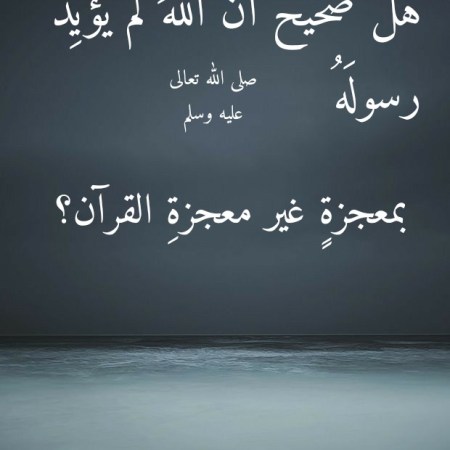 هل صحيح أن اللهَ لم يؤيِد
رسولَهُ
صلى الله تعالى
عليه وسلم
بمعجزةٍ غير معجزةِ القرآن؟